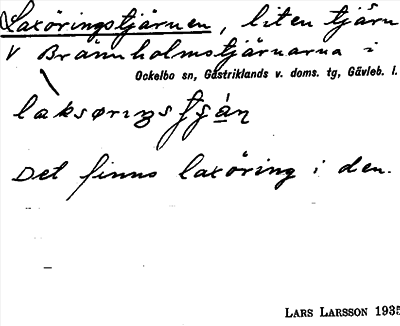 Laxöringstjärnen, liten tjärn
V Brännholmstjärnarna i
Ockelbo sn, Gästriklands v. doms. tg, Gävleb. l.
laksøriŋs
Det finns laxöring i den.
LARS LARSSON 1935